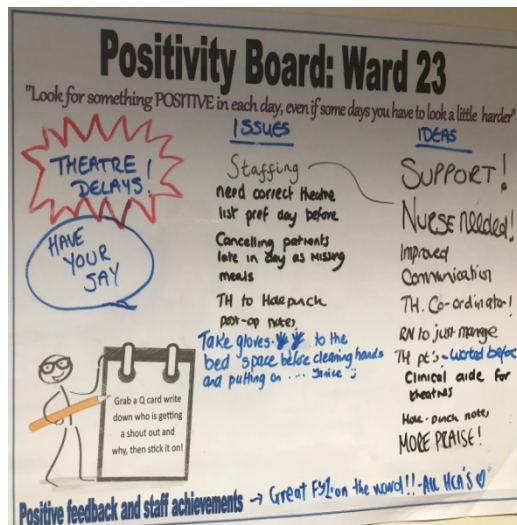 Positivity Board: Ward 23
"Look for something POSITIVE in each day, even if some days you have to look a little harder"
THEATRE
DELAYS!
HAVE
YOUR
SAY
ISSUES
Staffing
need correct theatre
list pref day before
Cancelling patients
late in day as missing
meals
TH to Holepunch
post-op notes
Take gloves to the
bed space before cleaning hands
and putting on ... Janice
IDEAS
SUPPORT!
NURSE needed!
Improved
Communication
TH. Co-ordinator!
RN to just manage
TH pt's - worked before
Clinical aide for
theatres
Hole-punch notes
MORE PRAISE!
Grab a Q card write
down who is getting
a shout out and
why, then stick it on!
Positive feedback and staff achievements → Great FY1 on the ward!! - All HCA's ♡